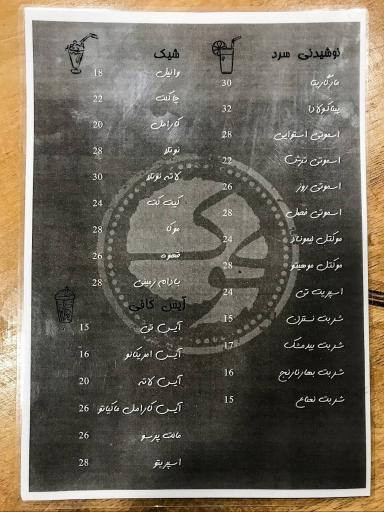 نوشیدنی سرد
مارگاریتا 30
پیناکولادا 32
اسموتی استوایی 28
اسموتی ترش 22
اسموتی روز 26
اسموتی فصل 28
موکتل لیموناد 24
موکتل موهیتو 28
اسپریت تی 24
شربت نسترن 15
شربت بیدمشک 17
شربت بهارنارنج 16
شربت نعناع 15
شیک
وانیل 18
چاکلت 22
کارامل 20
نوتلا 28
لاته نوتلا 30
کیت کت 24
موکا 28
قهوه 26
بادام زمینی 28
آیس کافی
آیس تی 15
آیس امریکانو 16
آیس لاته 20
آیس کارامل ماکیاتو 26
مانت پرسو 26
اسپریتو 28